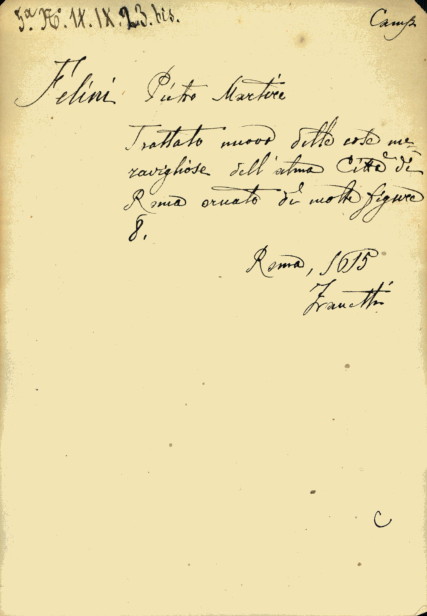 5ª Nº. IX. IX. 23. bis.
Camp
Felini Pietro Martire
Trattato nuovo delle cose me-
ravigliose dell'alma Città di
Roma ornato di molte figure
8.
Roma, 1615
Zanetti
C